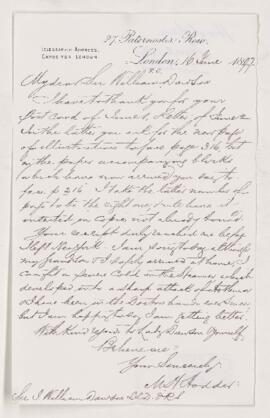 27, Paternoster Row,
TELEGRAPHIC ADDRESS,
London, 16 June 1897.
My dear Sir William Dawson
I have to thank you for your
Post Card of June 1, & Letter of June 2
In the letter you ask for the new page
of illustrations to face page 316, but
on the paper accompanying blocks
which have now arrived you say to
face p 216 I take the latter number of
page to be the right one, & will have it
inserted in copies not already bound.
Your receipt duly reached me before
I left New York. I am sorry to say although
my grandson & I safely arrived at home, I
caught a severe cold in the Steamer which
developed into a sharp attack of Asthma
& I have been in the Doctors hands ever since
but I am happy to say I am getting better.
With Kind regards to Lady Dawson & Yourself,
Believe me
Yours Sincerely
M H Hodder
Sir J William Dawson LL.D. F.R.S.